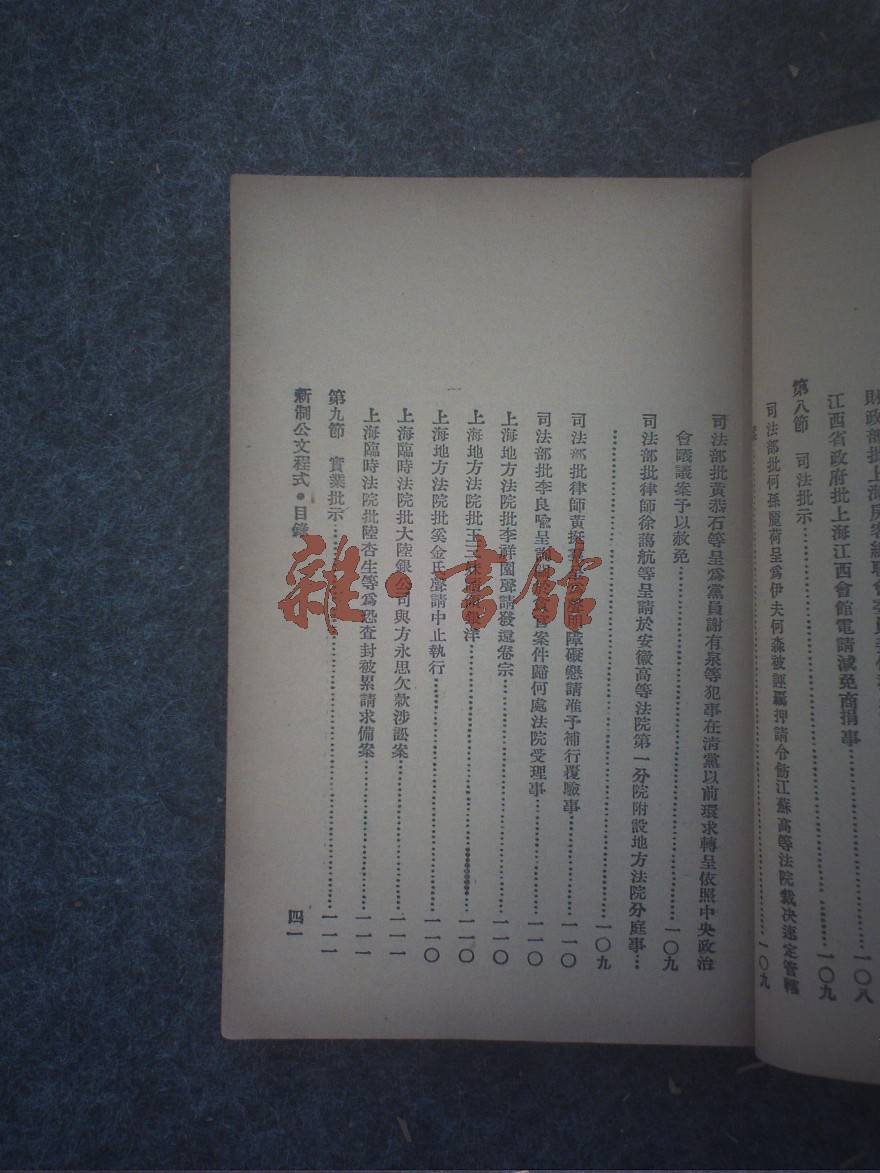 江西省政府批上海江西會館電請減免商捐事………一〇九
第八節　司法批示………一〇九
司法部批何孫麗荷呈爲伊夫何森被誣羈押請令飭江蘇高等法院裁决速定管轄
司法部批黃恭石等呈爲黨員謝有泉等犯事在淸黨以前環求轉呈依照中央政治
會議議案予以赦免………一〇九
司法部批律師徐蕩航等呈請於安徽高等法院第一分院附設地方法院分庭事…
………一〇九
司法部批律師黃 障礙懇請准予補行覆驗事………一一〇
司法部批李良喩呈 案件歸何處法院受理事………一一〇
上海地方法院批李祥園聲請發還卷宗………一一〇
上海地方法院批王三 洋………一一〇
上海地方法院批奚金氏聲請中止執行………一一〇
上海臨時法院批大陸銀公司與方永思欠款涉訟案………一一一
上海臨時法院批陸杏生等爲恐查封被累請求備案………一一一
第九節　實業批示………一一一
新制公文程式●目錄
四一
雜·書館